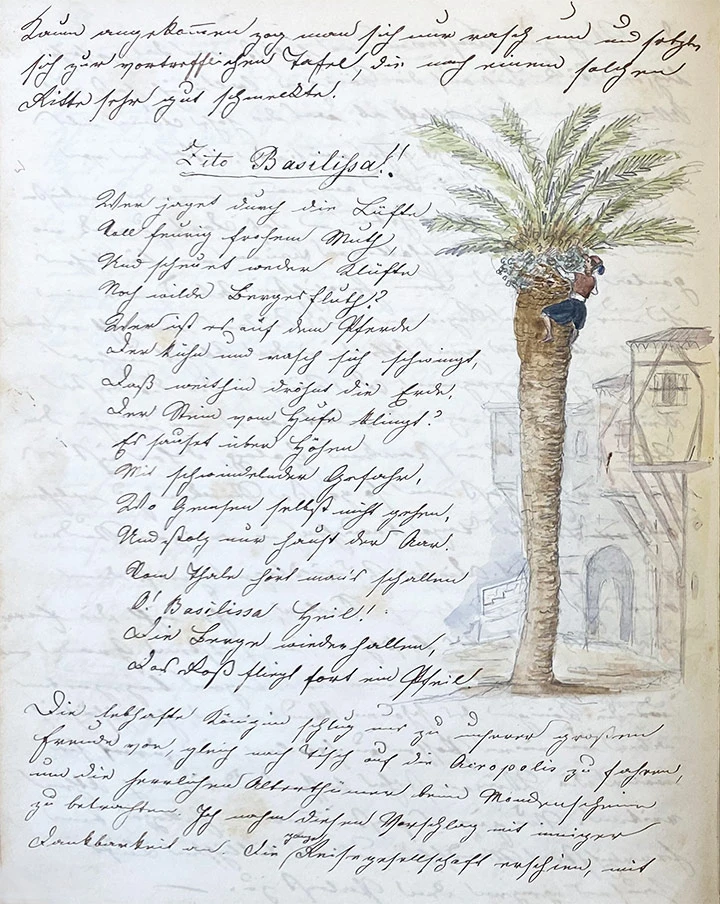 Kaum angekommen zog man sich nur rasch um und setzte
sich zur vortrefflichen Tafel, die nach einem solchen
Ritte sehr gut schmeckte!
Zito Basilissa!!
Wer jaget durch die Lüfte
Voll feurig frohem Muth,
Und scheuet weder Klüfte
Noch wilde Bergesfluth?
Wer ist es, auf dem Pferde
Der kühn und rasch sich schwingt,
Daß weithin dröhnt die Erde,
Der Stein vom Hufe klingt?
Es sauset über Höhen
Mit schwindelnder Gefahr,
Wo Gemsen selbst nicht gehen,
Und stolz nur haust der Aar.
Vom Thale hört man's schallen
O! Basilissa Heil!
Die Berge wiederhallen,
Das Roß fliegt fort ein Pfeil
Die lebhafte Königin schlug uns zu unserer großen
Freude vor, gleich nach Tisch auf die Acropolis zu fahren,
um die herrlichen Alterthümer beim Mondenschein
zu betrachten. Ich nahm diesen Vorschlag mit inniger
Dankbarkeit an. Die ganze Reisegesellschaft erschien, mit